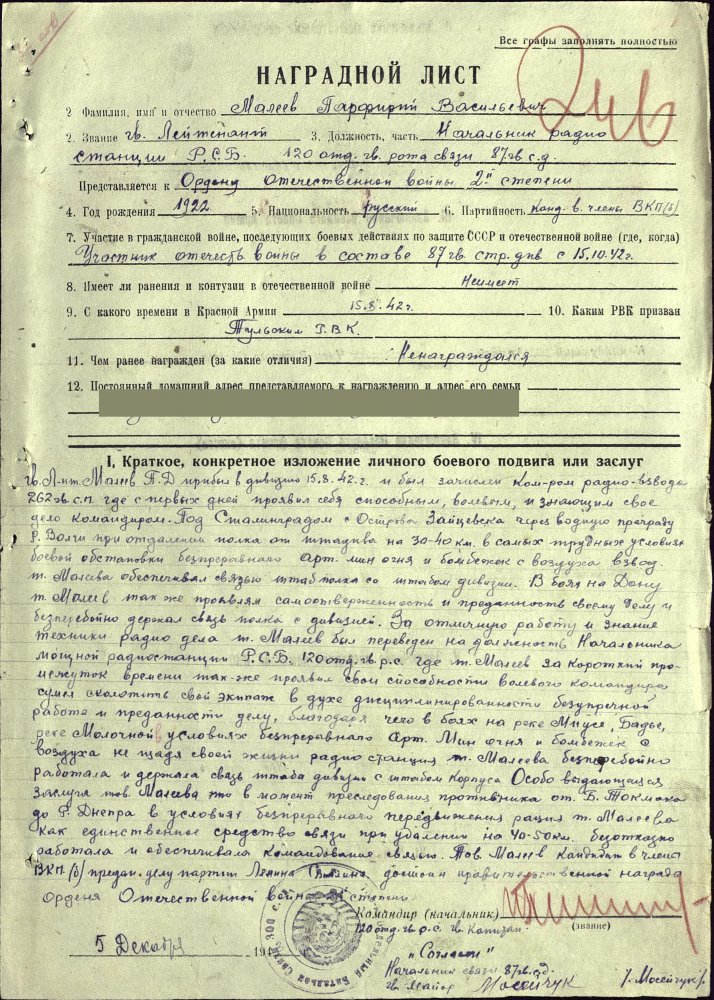 Все графы заполнять полностью
246
НАГРАДНОЙ ЛИСТ
2 Фамилия, имя и отчество Малеев Парфирий Васильевич
2. Звание гв. Лейтенант 3. Должность, часть Начальник радио
станции Р.С.Б. 120 отд. гв. рота связи 87 гв с.д.
Представляется к Ордену отечественной войны 2й степени
4. Год рождения 1922 5. Национальность русский 6. Партийность канд. в. члены ВКП(б)
7. Участие в гражданской войне, последующих боевых действиях по защите СССР и отечественной войне (где, когда)
Участник отечеств войны в составе 87 гв. стр. див с 15.10.42г.
8. Имеет ли ранения и контузии в отечественной войне Неимеет
9. С какого времени в Красной Армии 15.8.42г. 10. Каким РВК призван
Тульским Г.В.К.
11. Чем ранее награжден (за какие отличия) Ненаграждался
12. Постоянный домашний адрес представляемого к награждению и адрес его семьи
I. Краткое, конкретное изложение личного боевого подвига или заслуг
гв. Л-нт Малев П.Д прибыл в дивизию 15.8.42г. и был зачислен ком-ром радио-взвода
262 гв. с.п. где с первых дней проявил себя способным, волевым, и знающим свое
дело командиром. Под Сталинградом с Острова Зайцевска через водную преграду
р. Волги при отдалении полка от штадива на 30-40 км. в самых трудных условиях
боевой обстановки безпреравнаго Арт. мин огня и бомбежек с воздуха взвод
т. Малеева обеспечивал связью штаб полка со штабом дивизии. В боях на Дону
т Малеев так же проявлял самоотверженность и преданность своему делу и
безперебойно держал связь полка с дивизией. За отличную работу и знание
техники радио дела т. Малеев был переведен на должность Начальника
мощной радиостанции Р.С.Б. 120 отд. гв. р.с. где т. Малеев за короткий про-
межуток времени так-же проявил свои способности волевого командира
сумел сколотить свой экипаж в духе дисциплинированности безупречной
работе и преданности делу, благодаря чего в боях на реке Миусе,
реке Молочной в условиях безпреравнаго Арт. Мин огня и бомбежек с
воздуха не щадя своей жизни радио станция т. Малеева безперебойно
работала и держала связь штаба дивизии с штабом корпуса Особо выдающаяся
заслуга тов. Малеева это в момент преследования противника от Б. Токмака
до р. Днепра в условиях безпреравного передвижения рация т. Малеева
как единственное средство связи при удалении на 40-50 км. безотказно
работала и обеспечивала командование связью. Тов Малеев кандидат в члены
ВКП(б) предан делу партии Ленина Сталина достоин правительственной награда
орденя Отечественной войны 2й степени.
Командир (начальник)
(звание)
120 отд. гв р.с. гв. Капитан
5 Декабря 194
„Согласен"
Начальник связи 87 гв. с.д.
гв. майор Мосейчук /. Мосейчук/.